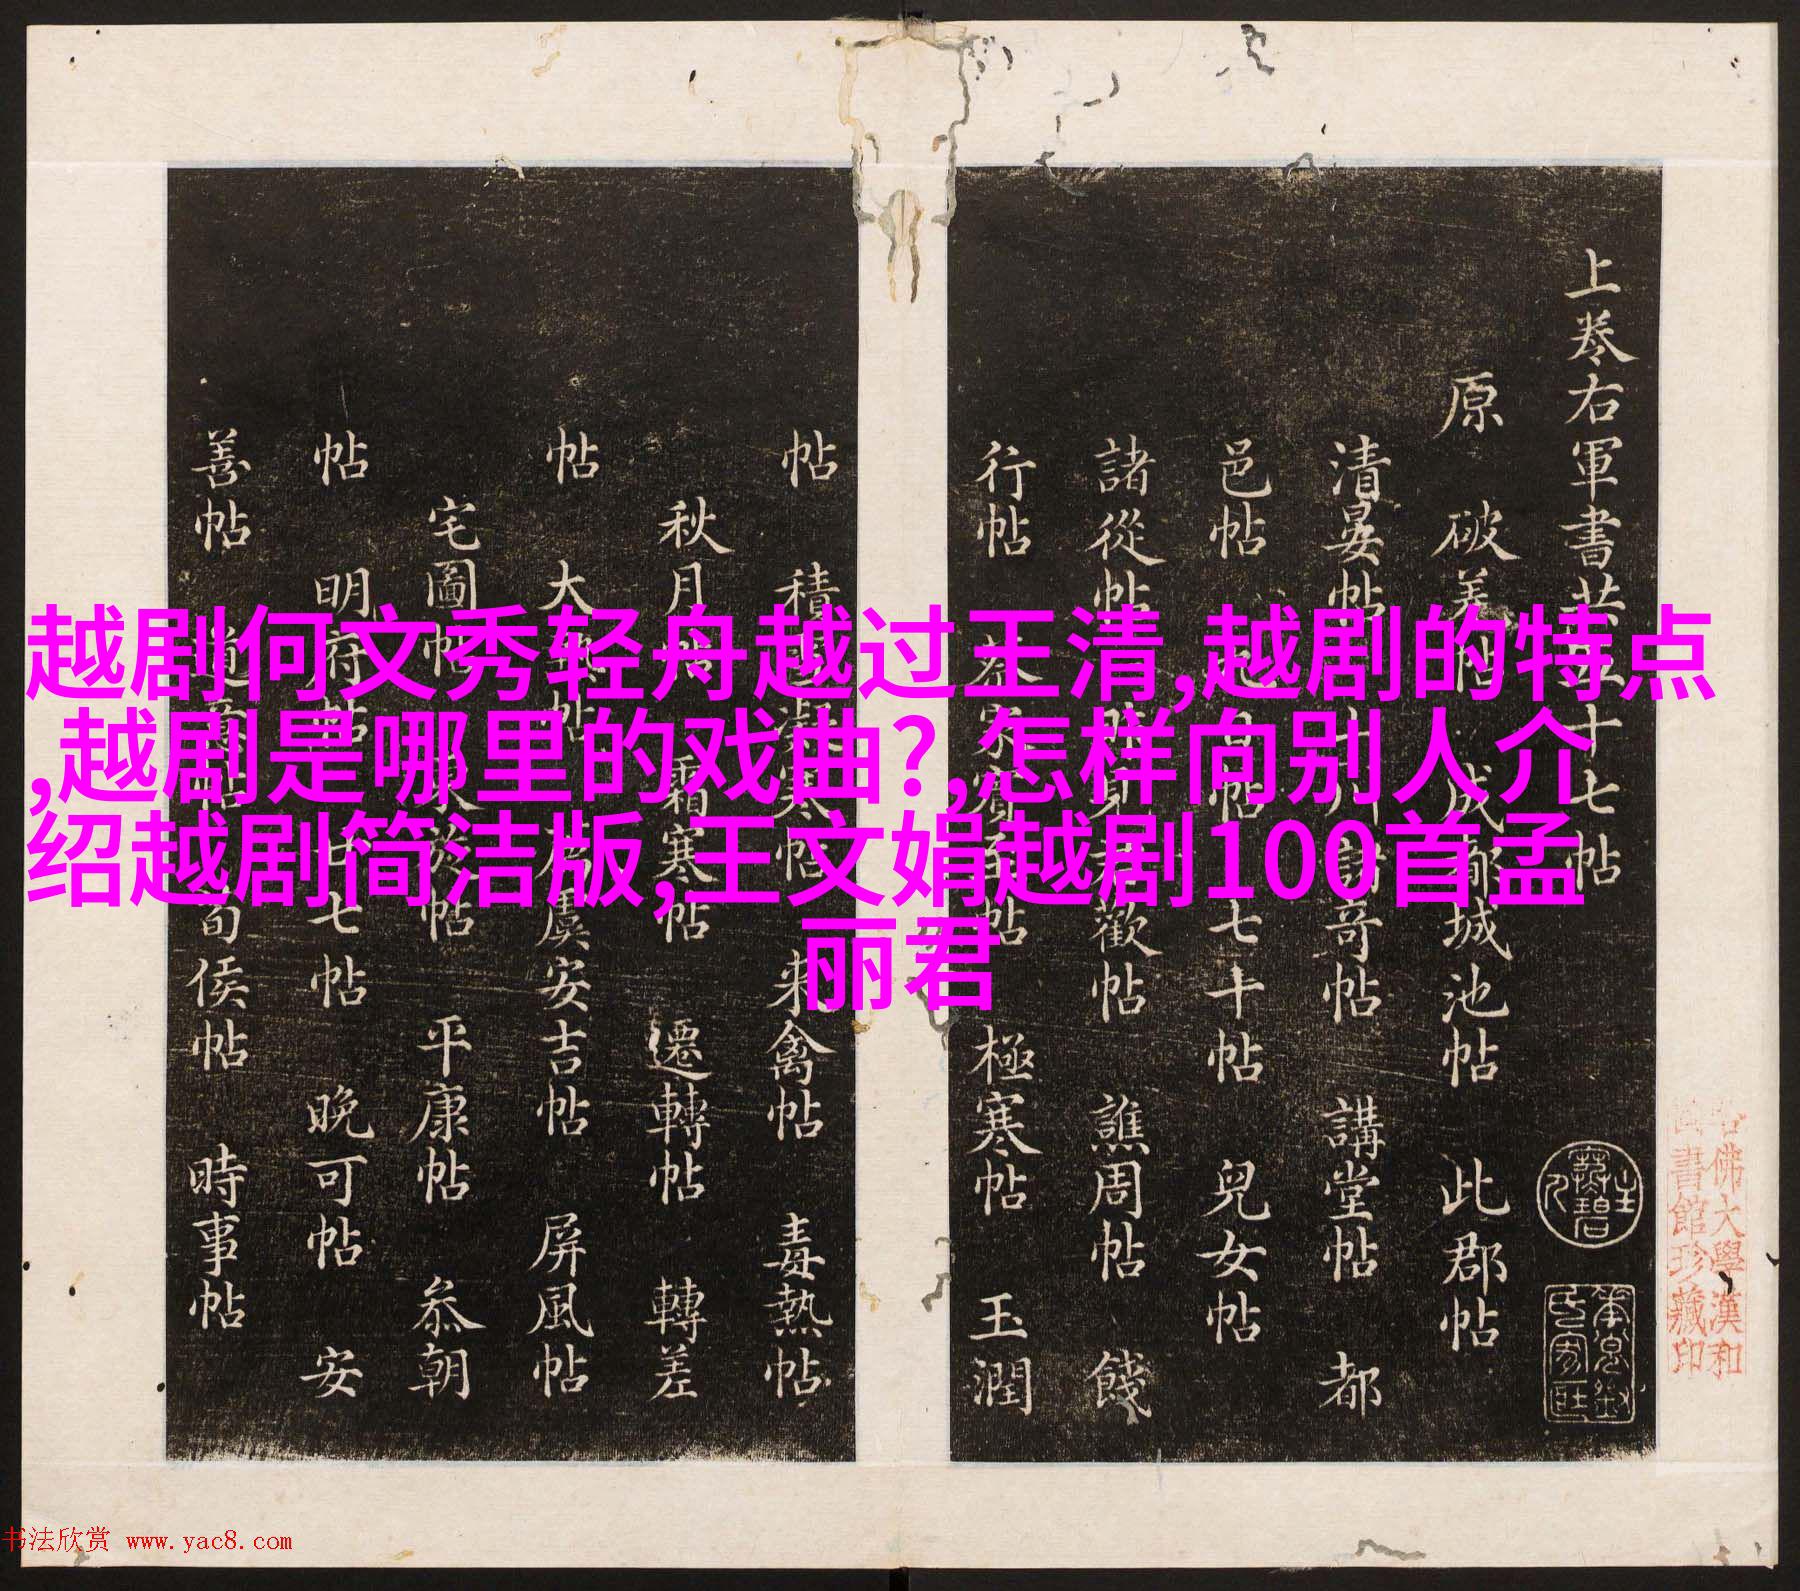 越剧何文秀轻舟越过王清,越剧的特点
,越剧是哪里的戏曲?,怎样向别人介
绍越剧简洁版,王文娟越剧100首孟
丽君
上卷右軍書共五十七帖
原 破羌帖 成都城池帖 此郡帖
清晏帖 奇帖 講堂帖 都
邑帖 七十帖 兒女帖
諸從帖 歡帖 譙周帖 餞
行帖 帖 極寒帖 玉潤
帖 積雪凝寒帖 来禽帖 毒熱帖
秋月帖 霜寒帖 遷轉帖 轉差
帖 大熱帖 虞安吉帖 屏風帖
宅圖帖 帖 平康帖 叅朝
帖 明府帖 七帖 晚可帖 安
善帖 旬 侯帖 時事帖
佛大學漢和
書館珍藏印
书法欣赏 www.yac8.com